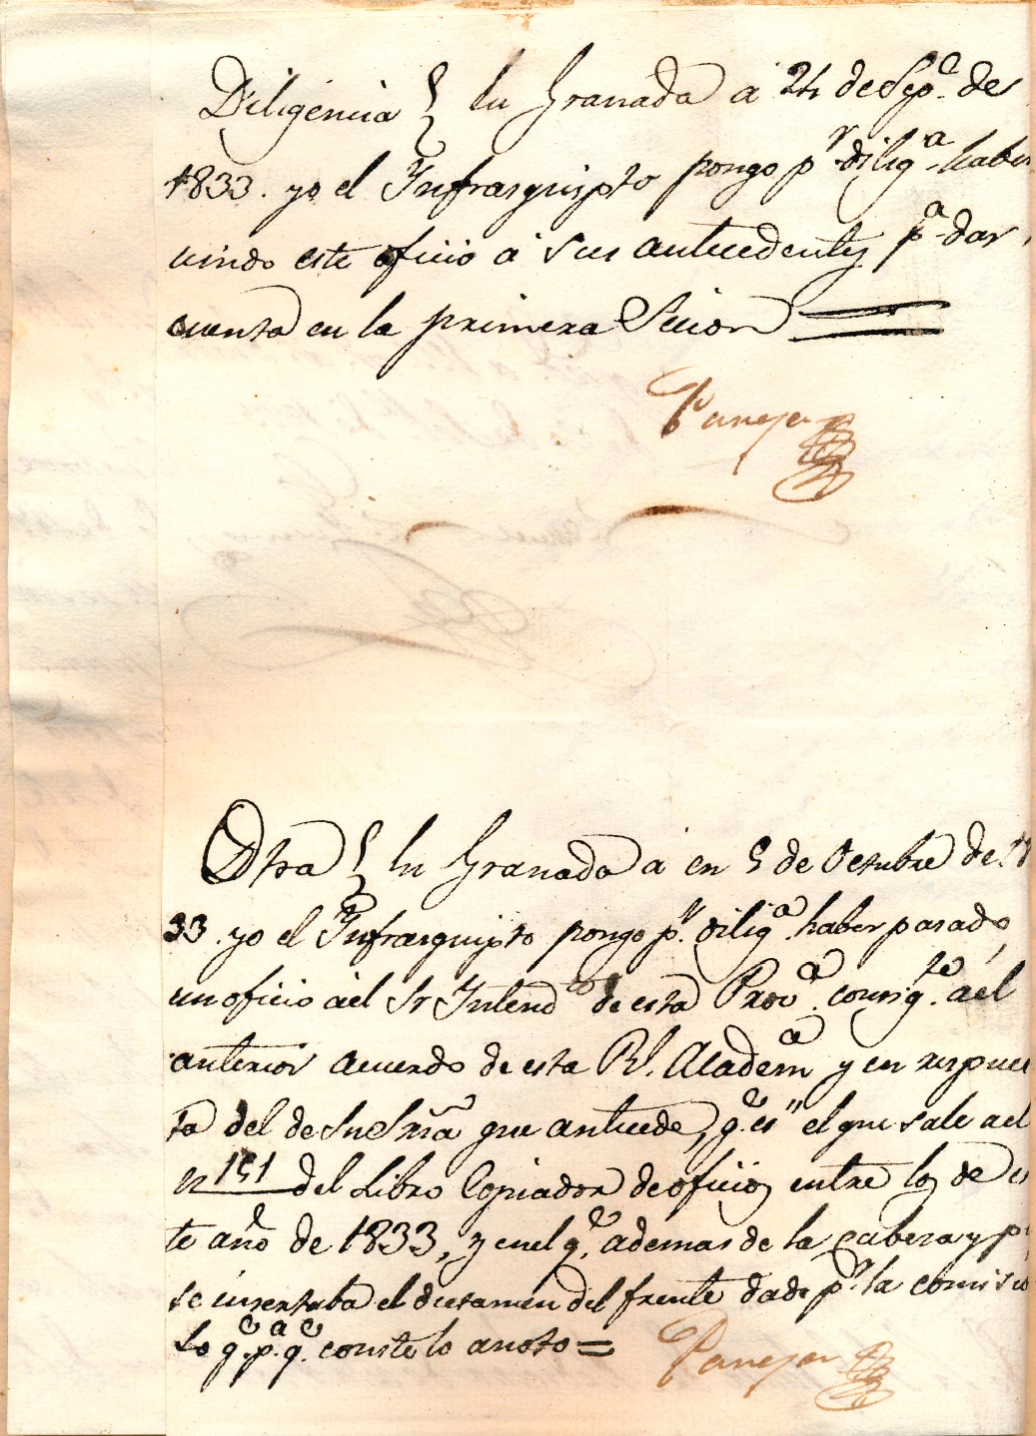 Diligencia En Granada á 24 de Sepe. de
1833. yo el Infrasquipto pongo pr. diliga. haber
unido este oficio á sus antecedentes pa. dar
cuenta en la primera Secion
Pareja
Otra En Granada á en 5 de Octubre de
33 yo el Infrasquipto pongo pr. diliga. haber pasado
un oficio áel Sr Intendto de esta Prova. consigte. áel
anterior acuerdo de esta Rl. Academa y en respues
ta del de Su Sría que antecede, qe. es el que sale ael
n 151 del Libro Copiador de oficios entre los de es
te año de 1833, y en el qe. ademas de la cabeza y pi
se insertaba el dictamen del frente dado pr. la comisio
Lo qe. pa. qe. conste lo anoto =
Pareja